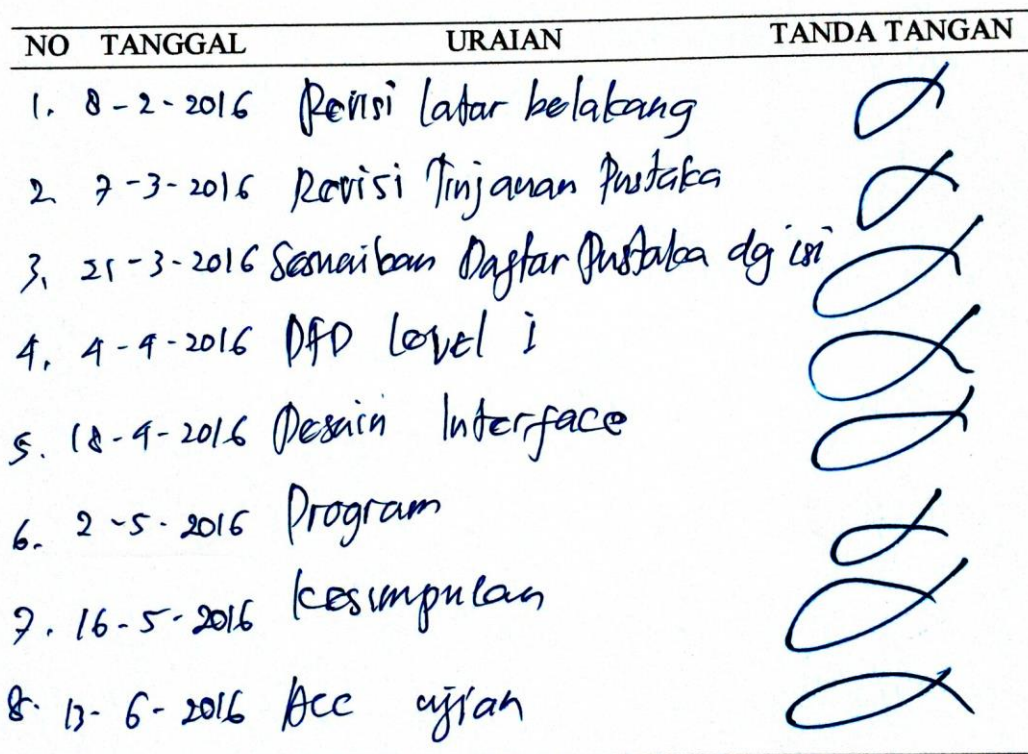 NO TANGGAL URAIAN TANDA TANGAN
1. 8-2-2016 Revisi latar belakang
2. 7-3-2016 Revisi Tinjauan Pustaka
3. 21-3-2016 Sesuaikan Daftar Pustaka dg isi
4. 4-4-2016 DFD Level 1
5. 18-4-2016 Desain Interface
6. 2-5-2016 Program
7. 16-5-2016 Kesimpulan
8. 13-6-2016 Acc ujian